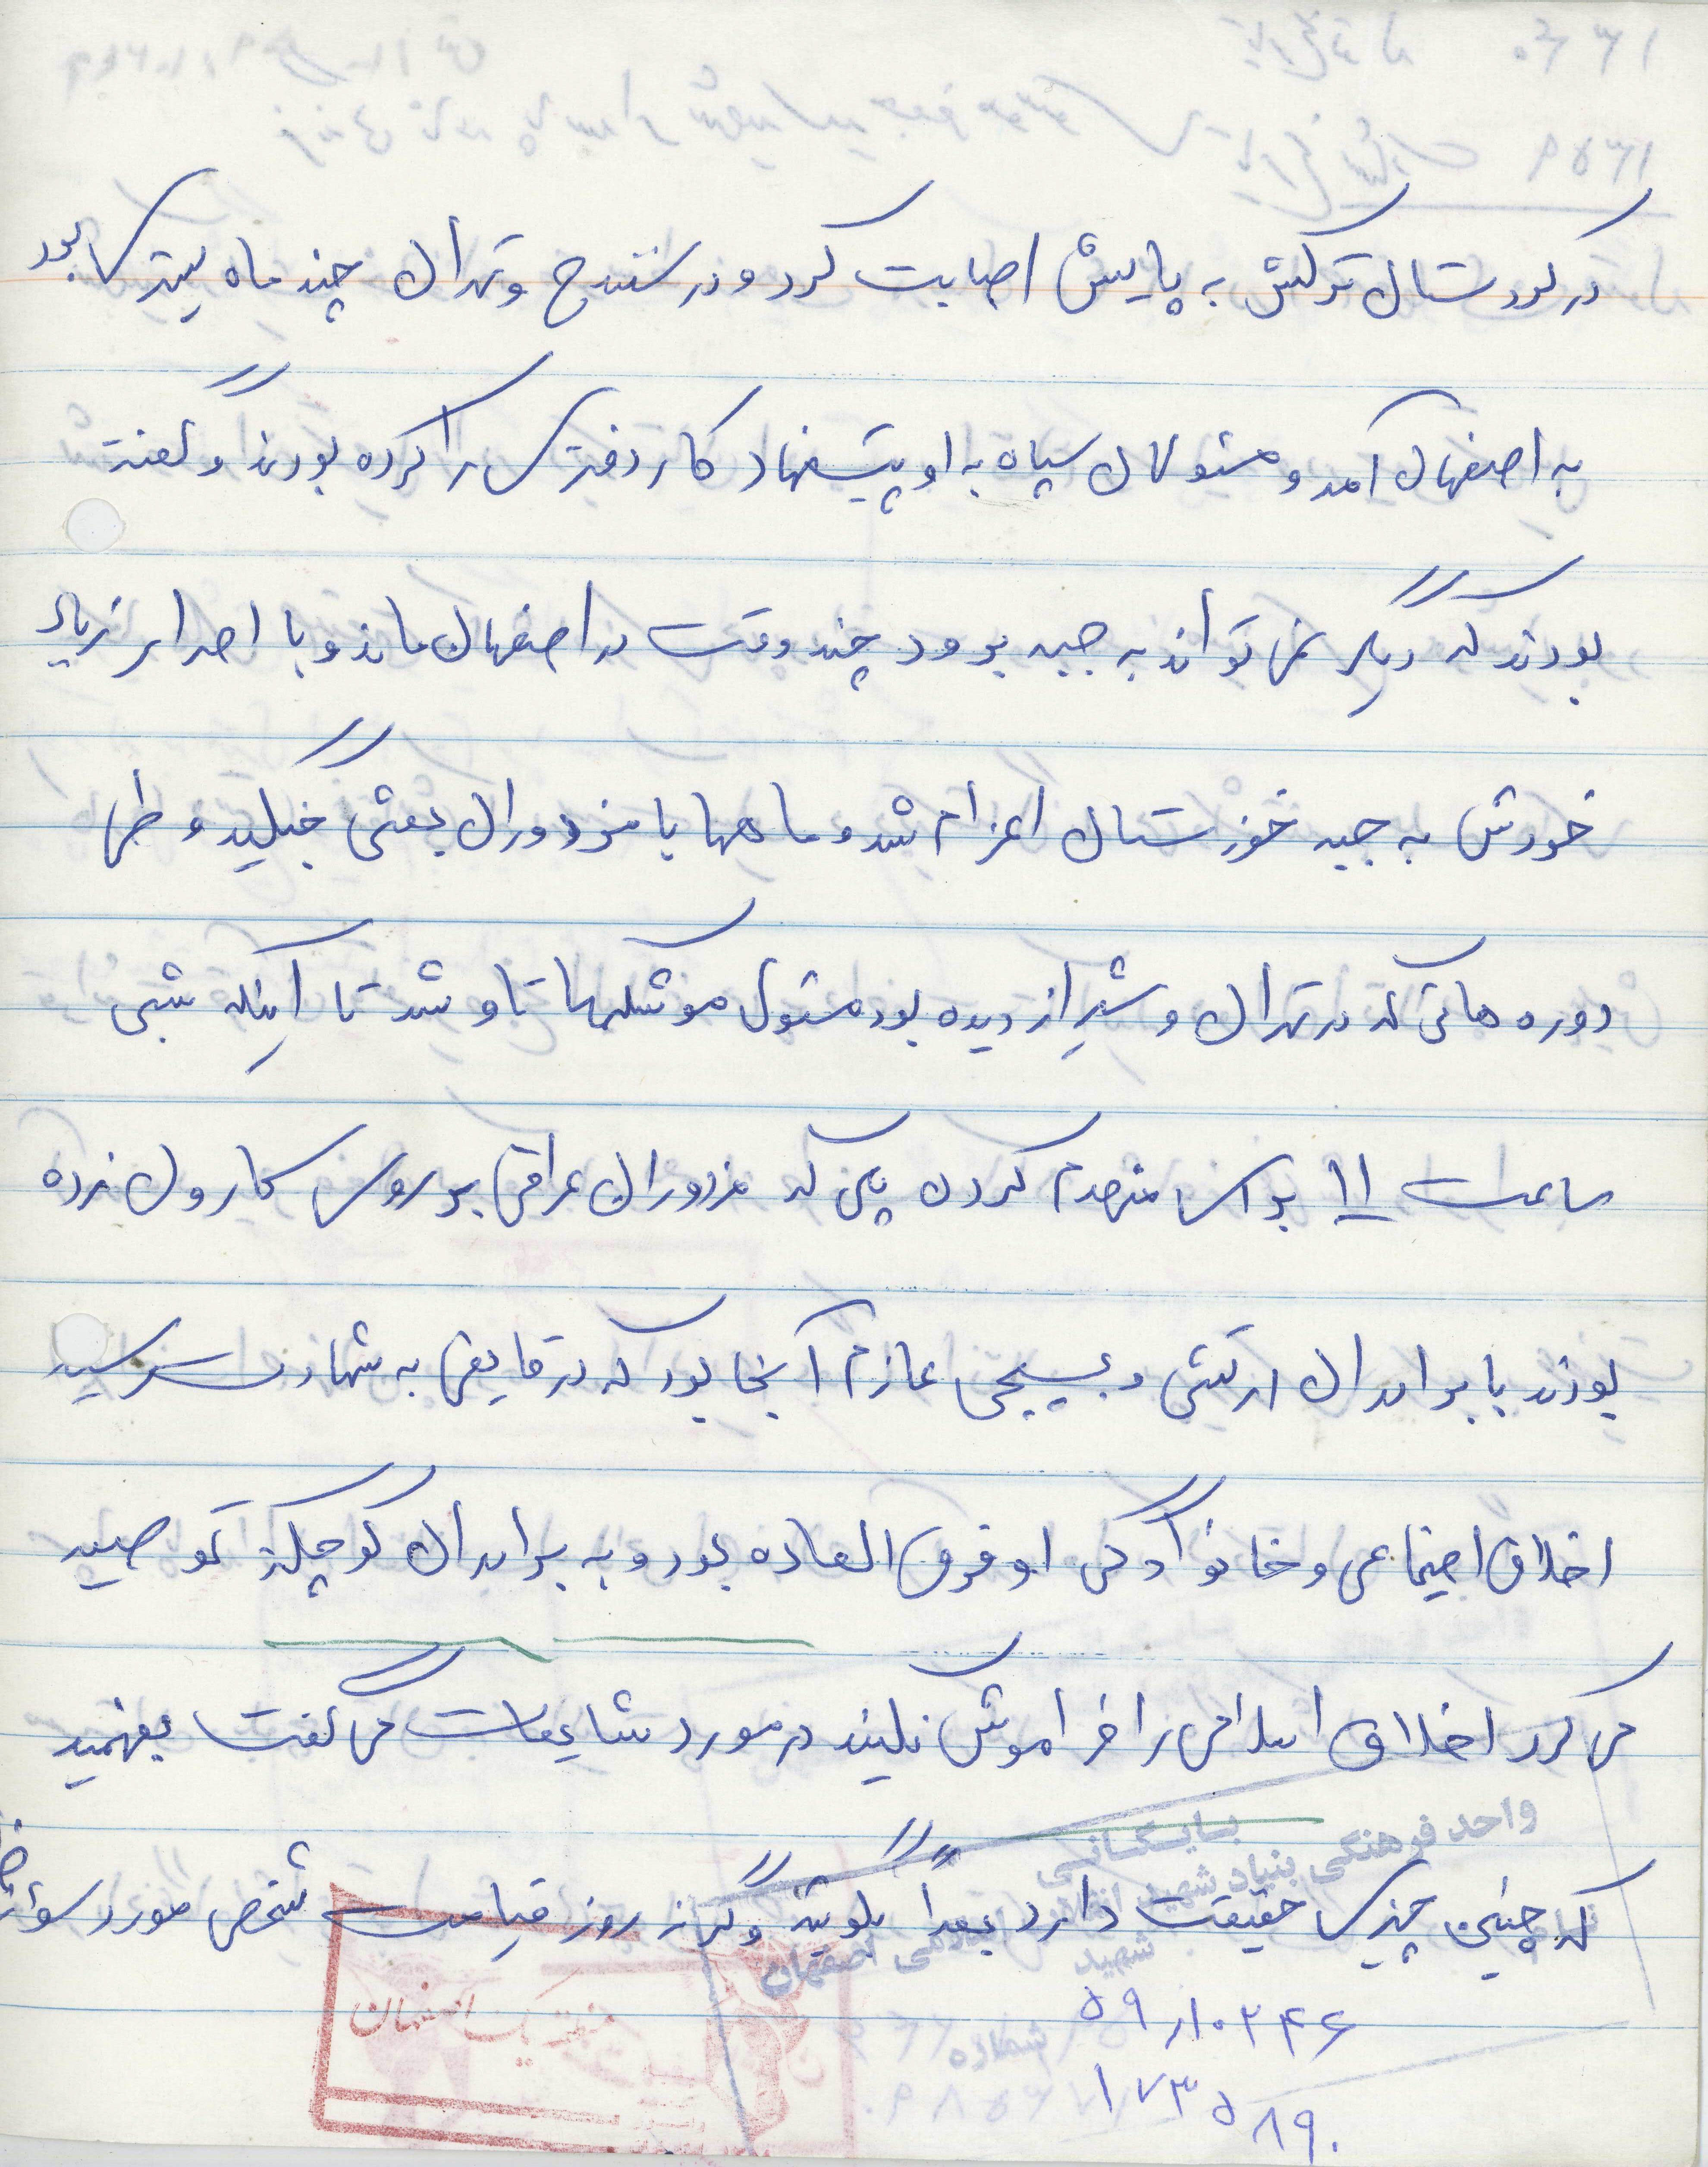 در کردستان ترکش به پایش اصابت کرد و در سنندج و تهران چند ماه بستری بود
به اصفهان آمد و مسئولان سپاه به او پیشنهاد کار دفتری را کرده بودند و گفته
بودند که دیگر نمی تواند به جبهه برود چند وقت در اصفهان ماند و با اصرار زیاد
خودش به جبهه خوزستان اعزام شد و ماهها با مزدوران بعثی جنگید و طی
دوره هائی که در تهران و شیراز دیده بود مسئول موشکهای تاو شد تا اینکه شبی
ساعت ۱۱ برای منهدم کردن پلی که مزدوران عراقی بر روی کارون زده
بودند با برادران ارتشی و بسیجی عازم آنجا بود که در قایقی به شهادت رسید
اخلاق اجتماعی و خانوادگی او فوق العاده بود و به برادران کوچکتر توصیه
می کرد اخلاق اسلامی را فراموش نکنید در مورد شایعات می گفت بفهمید
که چنین چیزی حقیقت دارد بعداً بگوئید وگرنه روز قیامت شخص مورد سوال
واحد فرهنگی بنیاد شهید
بایگانی
اصفهان
شهید
۵۹۱۰۲۴۴۶
شماره
۱۷۳۵۸۹۰
منطقه یک اصفهان